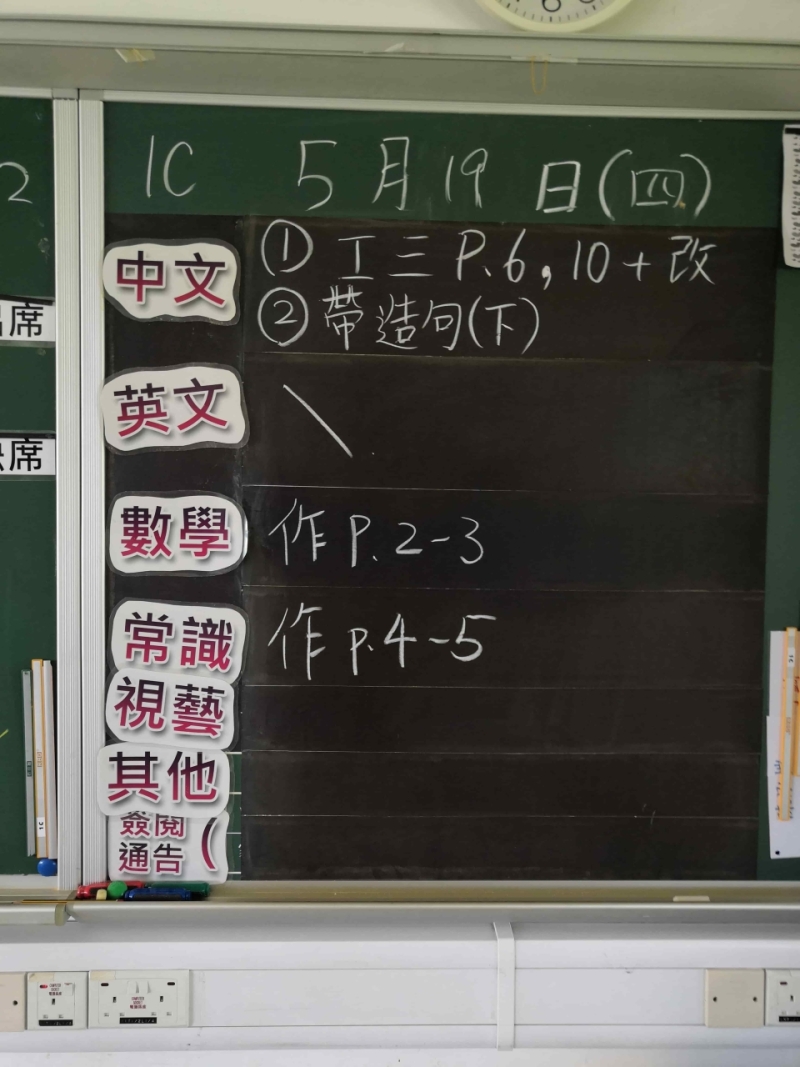 2
出席
缺席
1C 5月19日(四)
中文 ① 工三 P.6,10+改
② 帶造句(下)
英文 \
數學 作 P.2-3
常識 作 p.4-5
視藝
其他
簽閱
通告 (